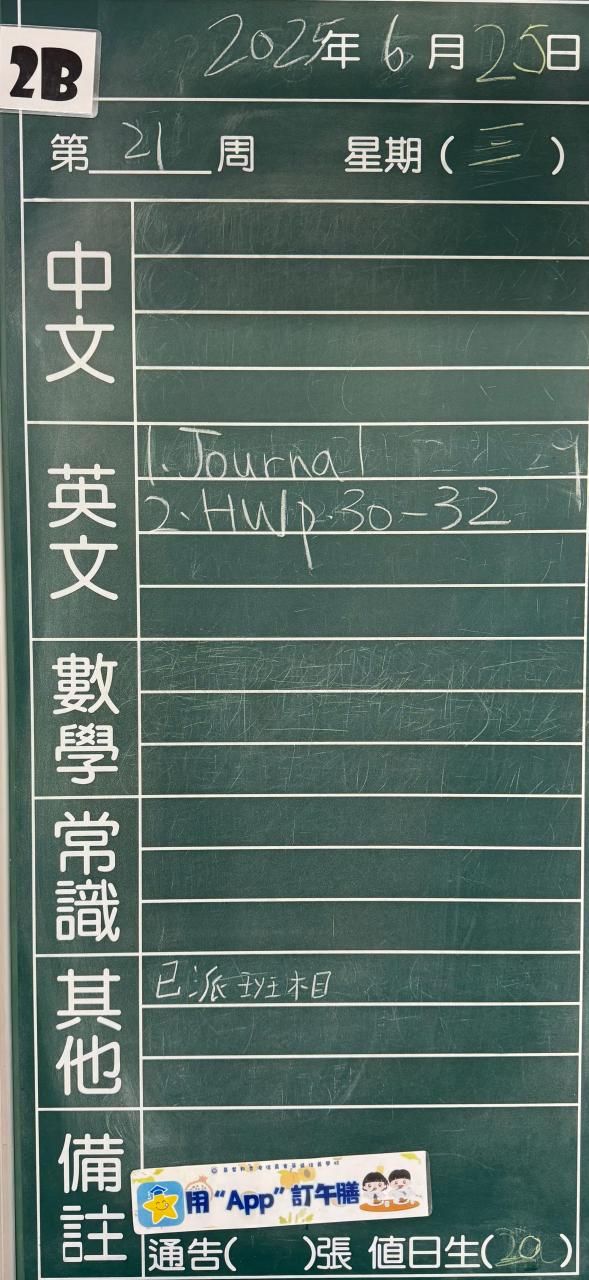 2B
2025年6月25日
第21周 星期(三)
中文
英文
1. Journal
2. HW p.30-32
數學
常識
其他
已派班相
備註
用“App”訂午膳
通告( )張 值日生(20)